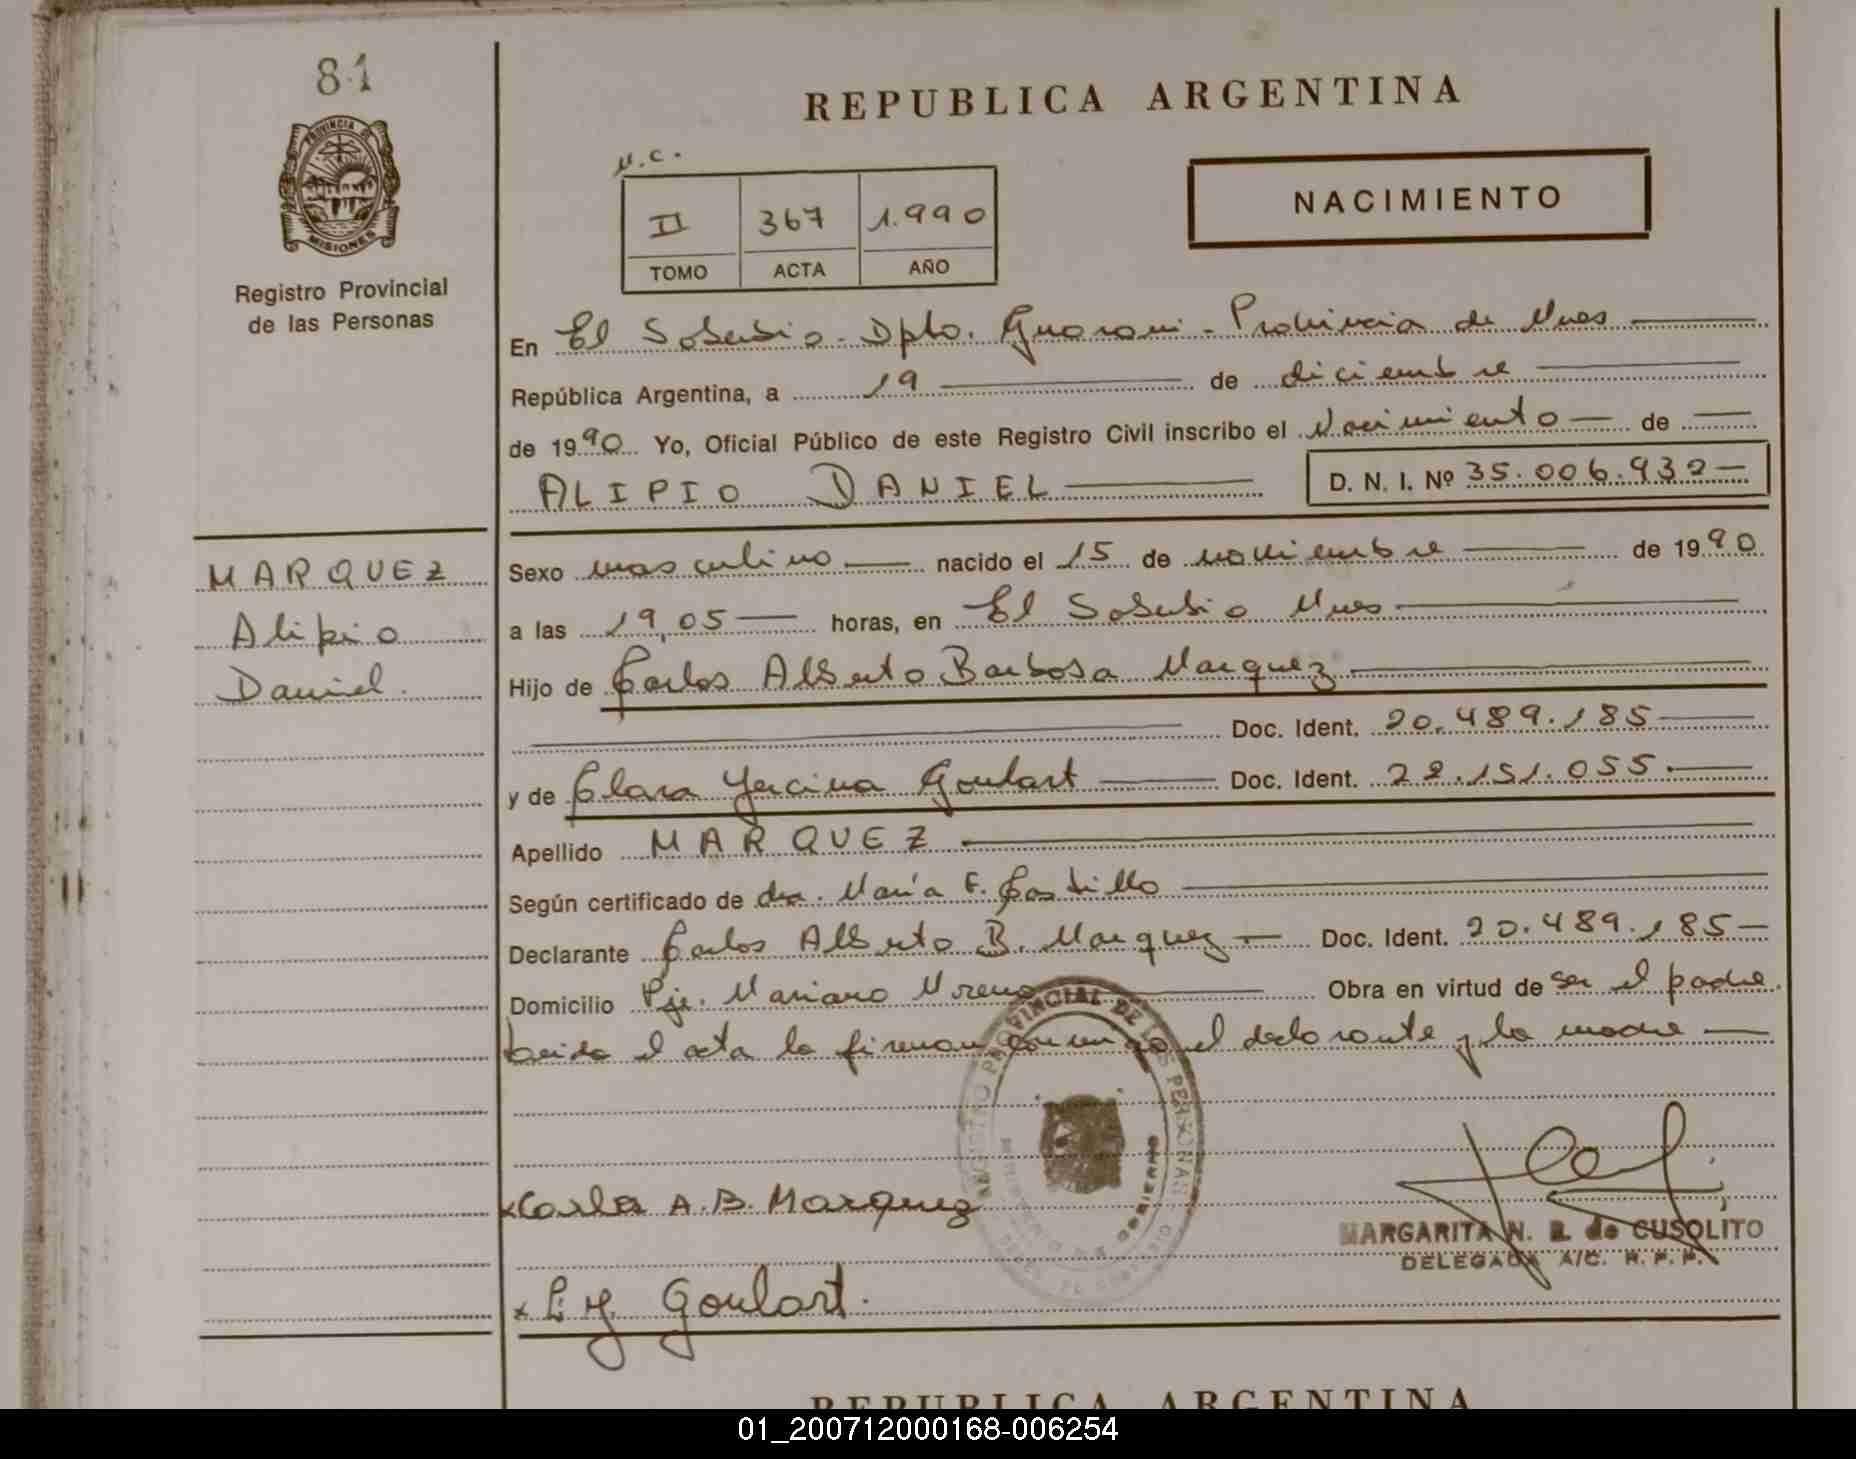 81
PROVINCIA DE
MISIONES
Registro Provincial
de las Personas
REPUBLICA ARGENTINA
NACIMIENTO
II 367 1.990
TOMO ACTA AÑO
En El Soberbio - Dpto. Guarani - Provincia de Mnes
República Argentina, a 19 de diciembre
de 1990 Yo, Oficial Público de este Registro Civil inscribo el Nacimiento de
ALIPIO DANIEL D. N. I. Nº 35.006.932
MARQUEZ
Alipio
Daniel.
Sexo masculino nacido el 15 de noviembre de 1990
a las 19,05 horas, en El Soberbio Mnes
Hijo de Carlos Alberto Barbosa Marquez
Doc. Ident. 20.489.185
y de Clara Jercina Goulart Doc. Ident. 22.151.055.
Apellido MARQUEZ
Según certificado de dra. María E. Castillo
Declarante Carlos Alberto B. Marquez Doc. Ident. 20.489.185
Domicilio Pje. Mariano Moreno Obra en virtud de ser el padre
Leida el acta la firman conmigo el declarante y la madre
REGISTRO PROVINCIAL DE LAS PERSONAS
MINISTERIO DE GOBIERNO
xCarlos A.B. Marquez
MARGARITA N. R. de CUSOLITO
DELEGADA A/C. R. P. P.
x C. J. Goulart.
REPUBLICA ARGENTINA
01_200712000168-006254